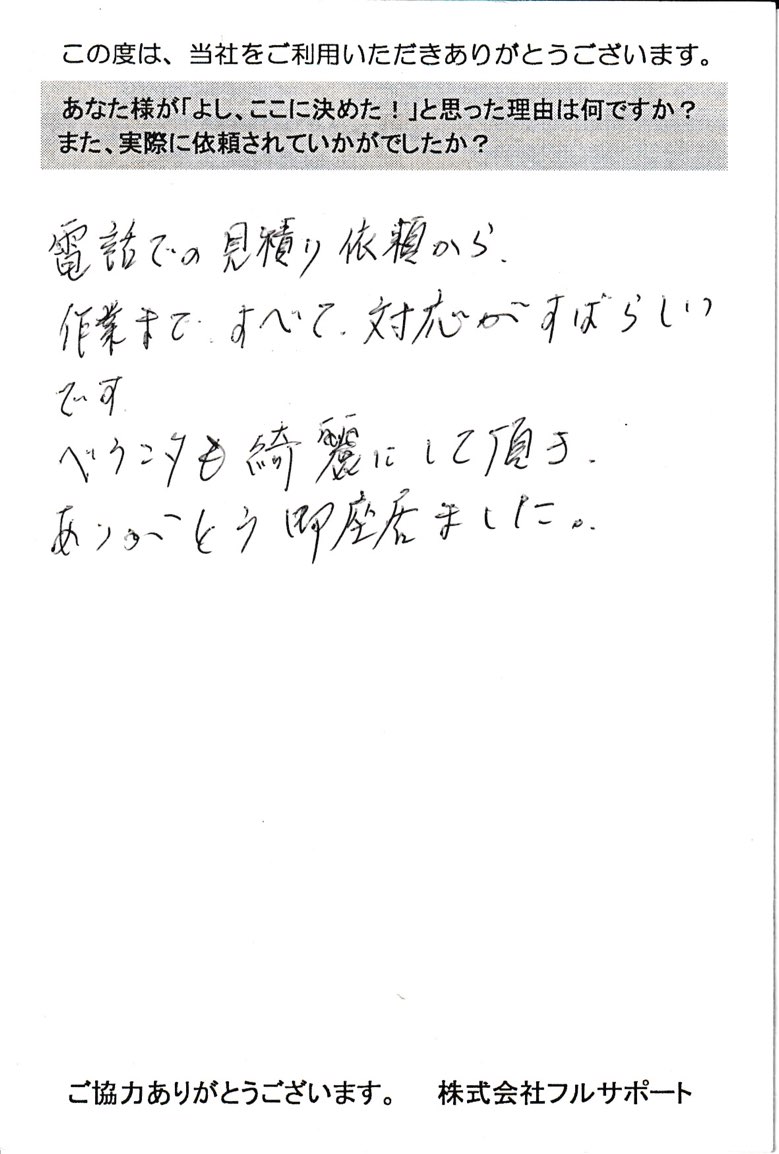 この度は、当社をご利用いただきありがとうございます。
あなた様が「よし、ここに決めた！」と思った理由は何ですか？
また、実際に依頼されていかがでしたか？
電話での見積り依頼から、
作業まで、すべて、対応がすばらしい
です
ベランダも綺麗にして頂き、
ありがとう御座居ました。
ご協力ありがとうございます。　株式会社フルサポート